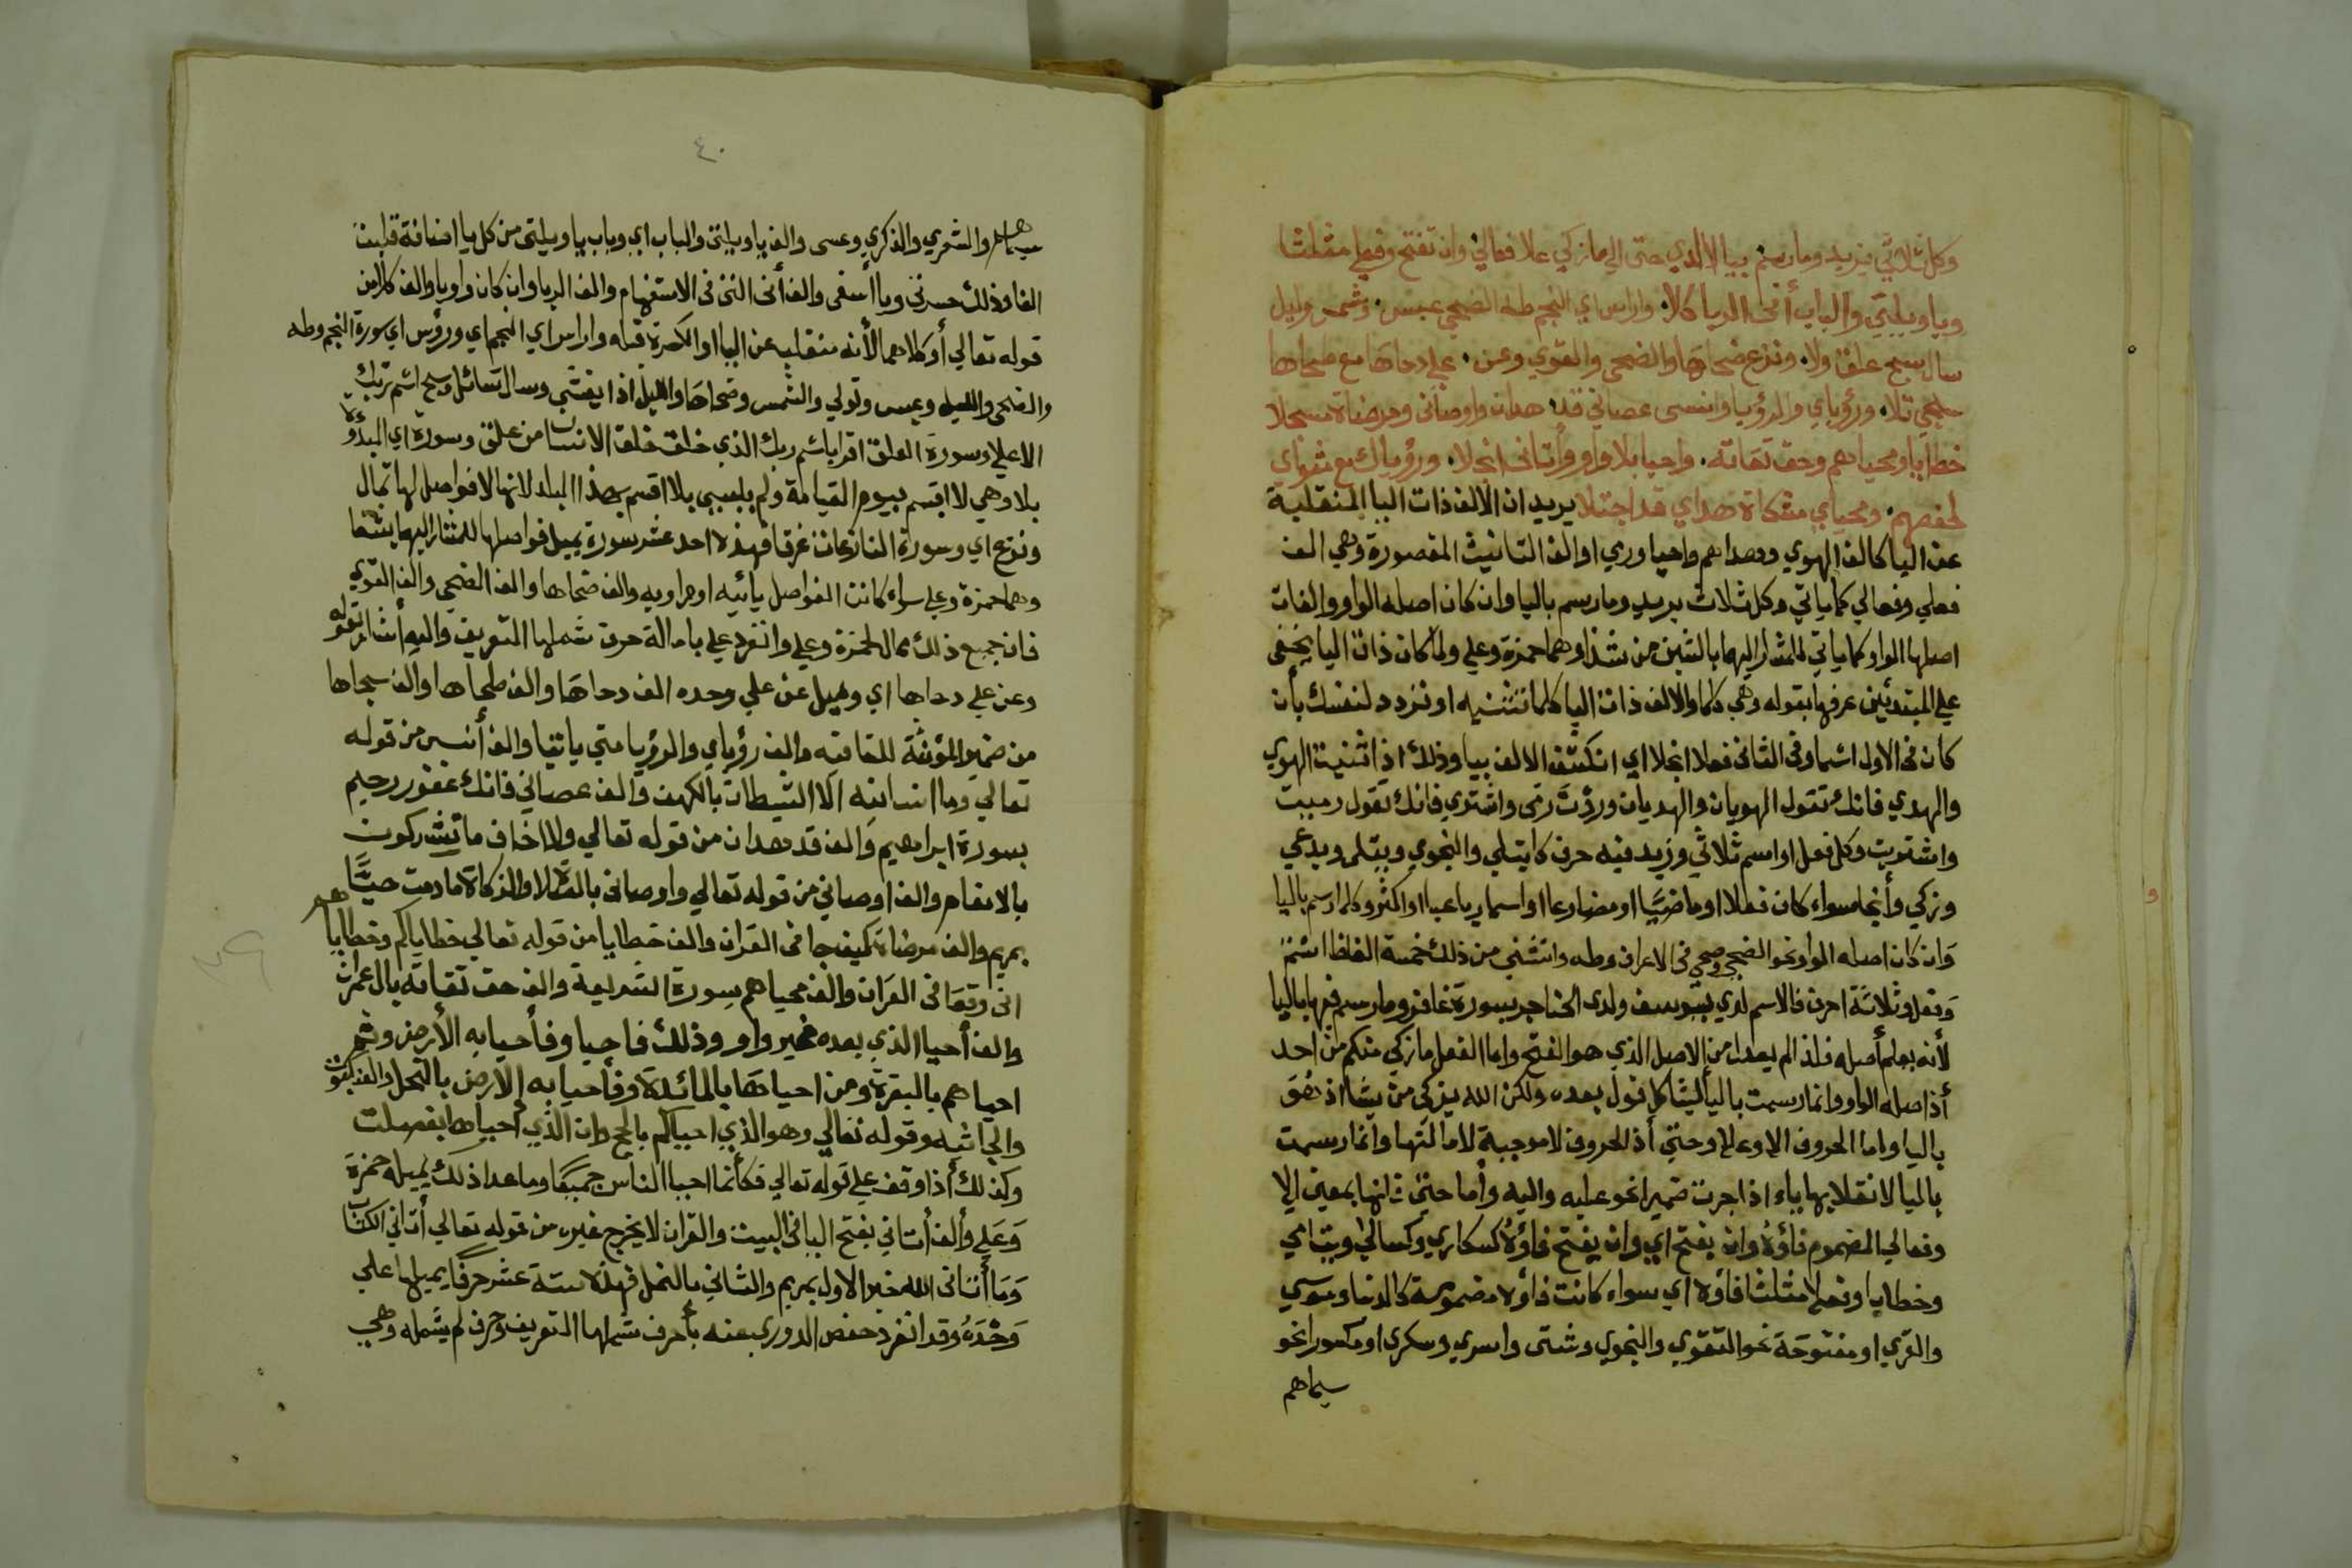 وكل ثلاثي يزيد وما رسم بيا لا لدي حتى الي ما زكي علا فعالي وان تفتح وفعلي مثلثا
وياويلتي والباب أنى الريا كلا واراس اي النجم طه الضحي عبس وشمس وليل
سال سبح علق ولا ونزع ضحاها والضحى والقوي وعن علي دحاها مع طحاها
سجي تلا ورؤياي والرؤيا وانسى عصاني قد هدان واوصاني ومرضاة مسجلا
خطايا ومحياهم وحق تقاته واحيا بلا واو وأتاني انجلا ورؤياك مع مثواي
لحفصهم ومحياي مشكاة هداي قد اجتلا يريد ان الالف ذات اليا المنقلبة
عن اليا كالف الهوي وهداهم واحيا ورمي او الف التانيث المقصورة وهي الف
فعلي وفعالي كما ياتي وكل ثلاث يزيد وما رسم باليا وان كان اصله الواو والفات
اصلها الواو كما ياتي للمشار اليهما بالشين من شذا وهما حمزة وعلي ولما كان ذات اليا يخفى
علي المبتدئين عرفها بقوله وهي كلما والالف ذات اليا كلما تثنيه او تردد لنفسك بأن
كان في الاول اسما وفي الثاني فعلا انجلا اي انكشف الالف بيا وذلك اذا ثنيت الهوي
والهدي فانك تقول الهويان والهديان ورددت رمى واشتري فانك تقول رميت
واشتريت وكل فعل او اسم ثلاثي وزيد فيه حرف كابتلي والنجوي ويتلى ويدعي
وزكي وأنجا سواء كان فعلا او ماضيا او مضارعا او اسما رباعيا او اكثر وكلما رسم باليا
وان كان اصله الواو نحو الضحي وضحي في الاعراف وطه واستثني من ذلك خمسة الفاظ اسم
وفعل وثلاثة احرف فالاسم لدي بيوسف ولدى الحناجر بسورة غافر وما رسم فيها باليا
لأنه يعلم أصله فلذا لم يعدل من الاصل الذي هو الفتح واما الفعل ما زكي منكم من احد
أذ اصله الواو وانما رسمت باليا ليشاكل قول بعده ولكن الله يزكى من يشا اذ هو
باليا واما الحروف الا وعلي وحتي أذ الحروف لا موجبة لامالتها وانما رسمت
باليا لانقلابها ياء اذا جرت ضميرا نحو عليه واليه وأما حتى فانها بمعنى الا
وفعالي المضموم فاؤه وان يفتح اي وان يفتح فاؤه كسكاري وكسالي ويتامي
وخطايا وفعلي مثلثا فاؤه اي سواء كانت فاؤه مضمومة كالدنيا وموسي
والقري او مفتوحة نحو التقوي والنجوي وشتى واسري وسكري او مكسورا نحو
سيماهم
٤٠
سيماهم والشعري والذكري وعسى والف ياويلتى والباب اي وباب ياويلتى من كل يا اضافة قلبت
الفا وذلك حسرتي ويا أسفى والف أنى التي في الاستفهام والف الريا وان كان واويا والف كلا من
قوله تعالي أو كلاهما لأنه منقلبه عن اليا او الكسرة قبله واراس اي النجم اي ورؤس اي سورة النجم وطه
والضحى والليل وعبس وتولي والشمس وضحاها والليل اذا يغشي وسال سائل وسبح اسم ربك
الاعلي وسورة العلق اقرا باسم ربك الذي خلق خلق الانسان من علق وسورة اي المبدؤة
بلا وهي لا اقسم بيوم القيامة ولم بلا اقسم بهذا البلد لانها لا فواصل لها تمال
ونزع اي وسورة النازعات غرقا فهذه احد عشر سورة يميل فواصلها للمشار اليهما بشفا
وهما حمزة وعلي سواء كانت الفواصل يائيه او واويه والف ضحاها والف الضحى والف القوي
فان جميع ذلك ممال لحمزة وعلي وانفرد علي بامالة حرف شملها التعريف واليه أشار بقوله
وعن علي دحاها اي ويميل عن علي وحده الف دحاها والف طحاها والف سجاها
من ضمير المؤنثة والف رؤياي والرؤيا متي ياتيا والف أنس من قوله
تعالي وما انسانيه الا الشيطان بالكهف والف عصاني فانك غفور رحيم
بسورة ابراهيم والف قد هدان من قوله تعالي ولا اخاف ما تشركون
بالانعام والف اوصاني من قوله تعالي واوصاني بالصلاة والزكاة ما دمت حيا
بمريم والف مرضاة كيف جا فى القران والف خطايا من قوله تعالي خطاياكم وخطاياهم
انى وقعا فى القران والف محياهم سورة الشريعة والف حق تقاته بال عمران
والف أحيا الذي بعده غير واو وذلك فاحيا وفأحيا به الأرض وثم
احياهم بالبقرة ومن احياها بالمائدة وفأحيا به الارض بالنحل والعنكبوت
والجاثيه وقوله تعالي وهو الذي احياكم بالحج وان الذي احياها بفصلت
وكذلك أذا وقف علي قوله تعالي فكأنما احيا الناس جميعا وما عدا ذلك يميله حمزة
وعلي وألف أتاني بفتح اليا فى البيت والقران لا يخرج غيره من قوله تعالي أتاني الكتاب
وما أتانى الله خير الاول بمريم والثاني بالنمل فهذه ستة عشر حرفا يميلها علي
وحده وقد انفرد حفص الدوري عنه بأحرف شملها التعريف وحرف لم يشمله وهي